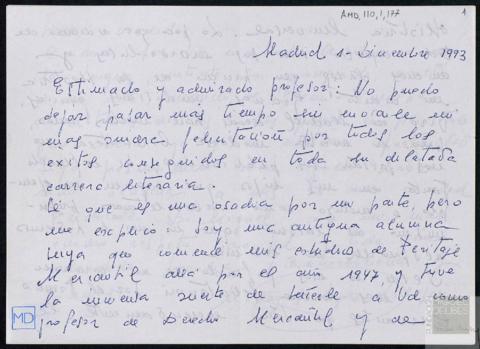 AMD, 110, 1, 177
1
Madrid 1- Diciembre 1993
Estimado y admirado profesor: No puedo
dejar pasar más tiempo sin enviarle mi
mas sincera felicitación por todos los
exitos conseguidos en toda su dilatada
carrera literaria.
Sé que es una osadia por mi parte, pero
me explico: Soy una antigua alumna
suya que comencé mis estudios de Peritaje
Mercantil allá por el año 1947, y tuve
la inmensa suerte de tenerle a Vd como
profesor de Derecho Mercantil y de
MD
DELIBES